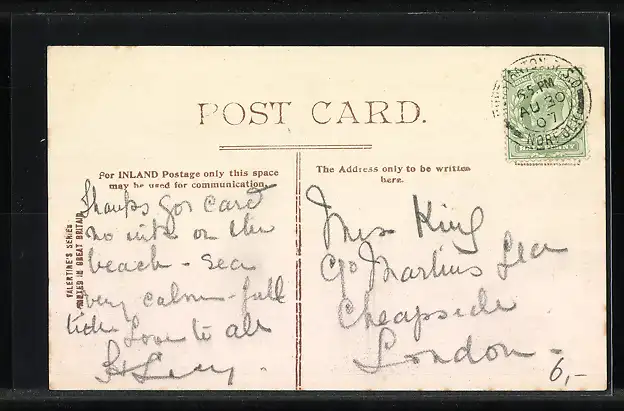 POST CARD.
For INLAND Postage only this space
may be used for communication.
The Address only to be written
here.
VALENTINE'S SERIES
PRINTED IN GREAT BRITAIN
5.5 PM
AU 30
07
NORFOLK
HALFPENNY
Thanks for card
no mite on the
beach - sea
very calm - full
tide Love to all
Miss King
c/o Martins
Cheapside
London -
6,-